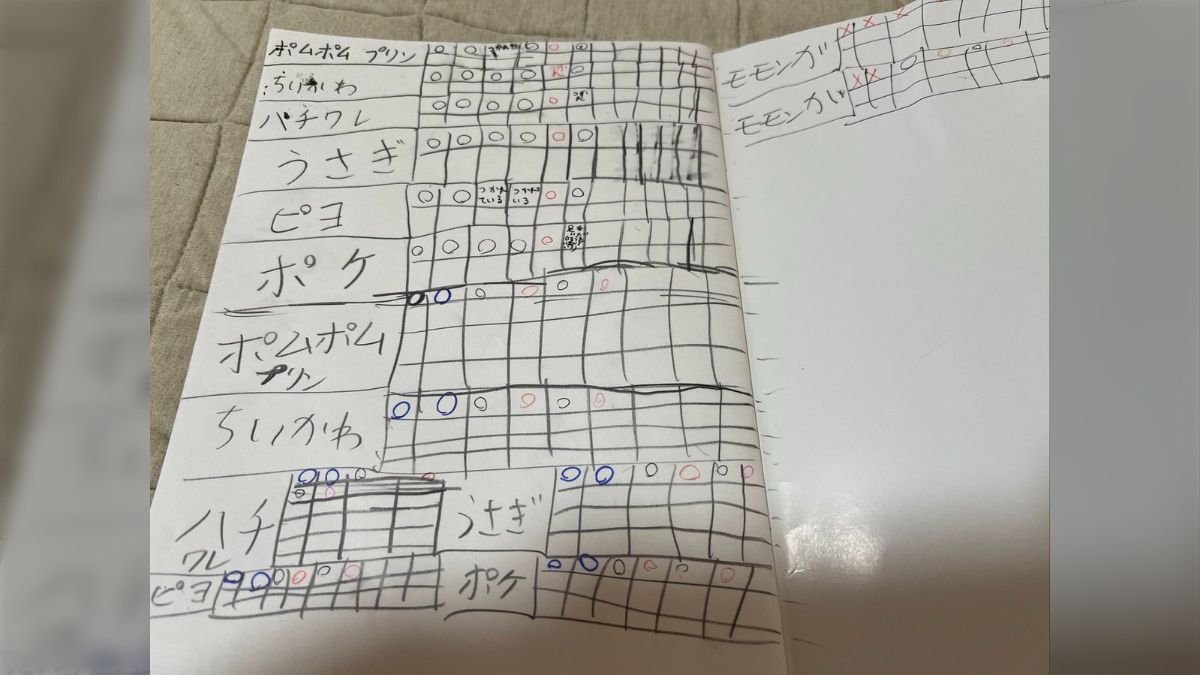 ポムポム プリン
ちいかわ
ハチワレ
うさぎ
ピヨ
つかれている
つかれいる
ポケ
ポムポム
プリン
ちいかわ
ハチ
ワレ
うさぎ
ピヨ
ポケ
モモンガ
モモンガ